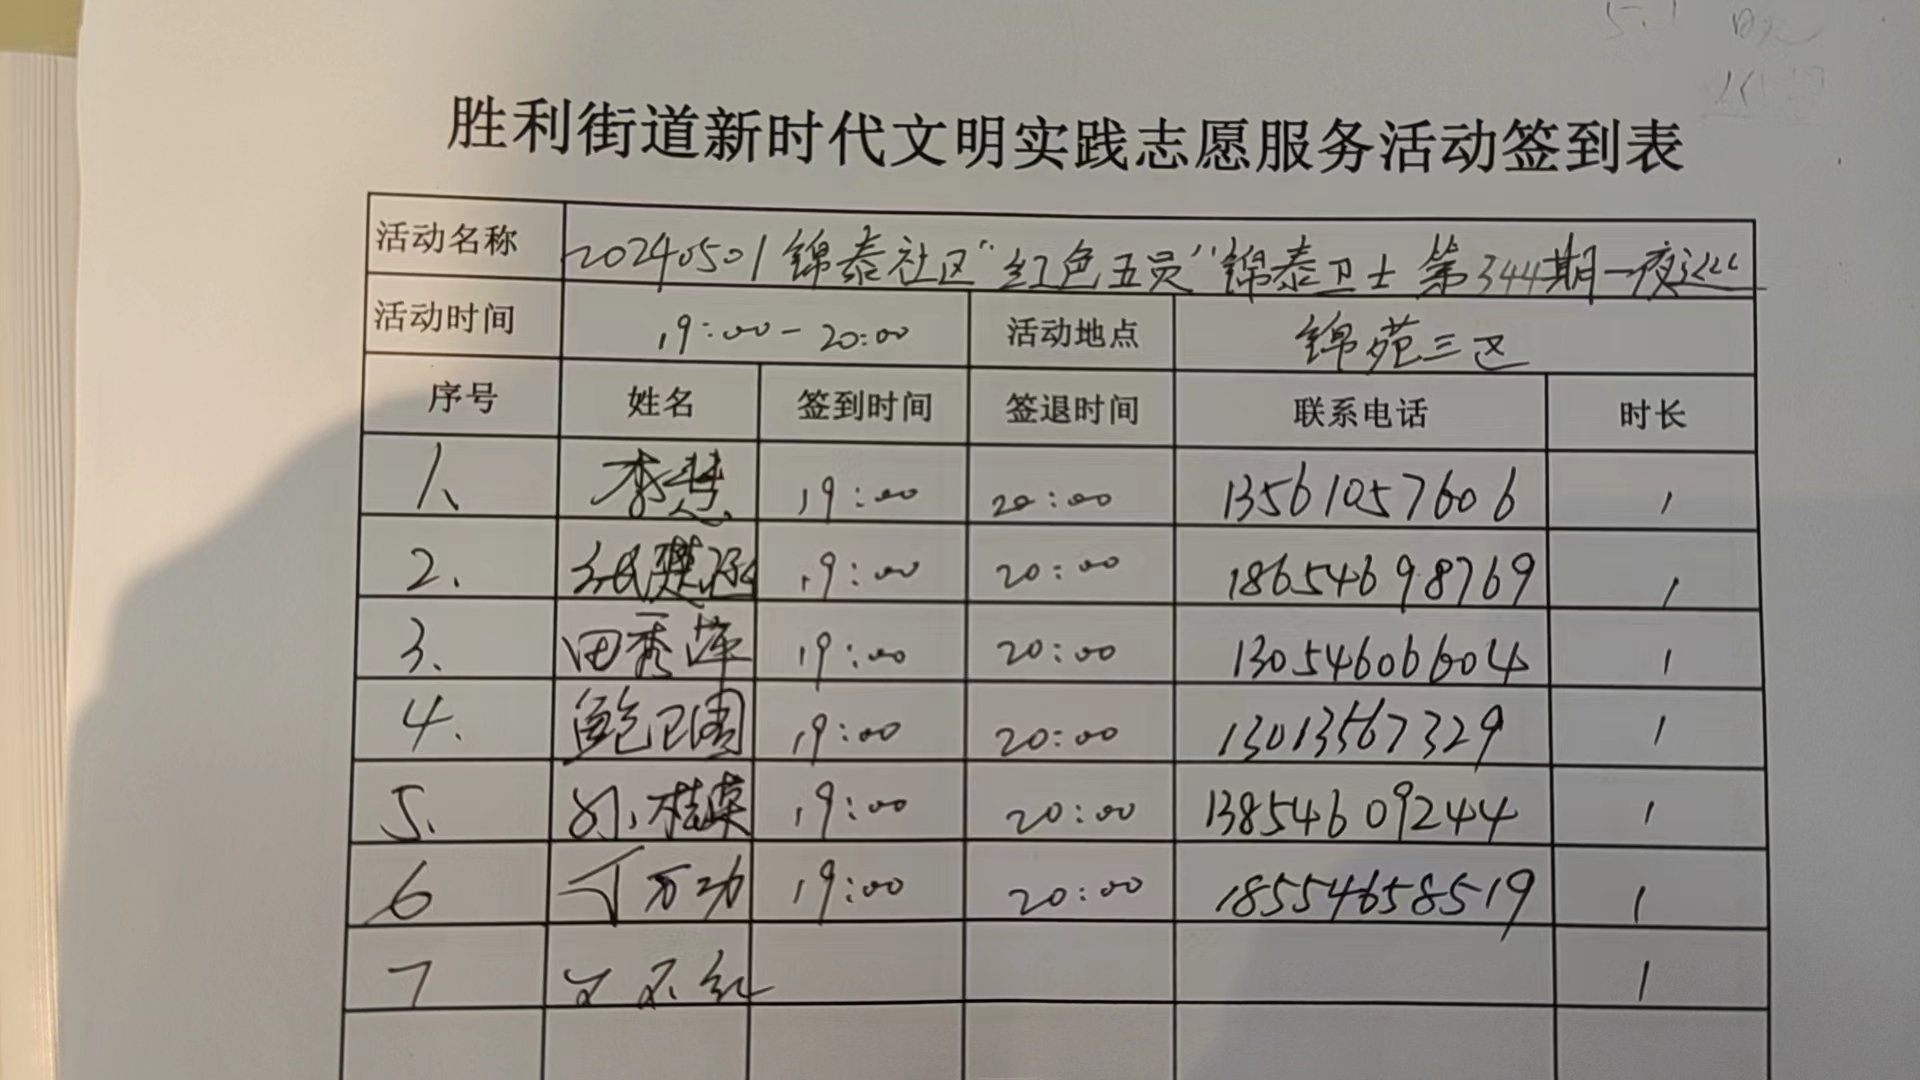 胜利街道新时代文明实践志愿服务活动签到表
活动名称 20240501锦泰社区“红色五员”锦泰卫士第344期一夜巡
活动时间 19:00-20:00 活动地点 锦苑三区
序号 姓名 签到时间 签退时间 联系电话 时长
1、 李慧 19:00 20:00 13561057606 1
2. 19:00 20:00 18654698769 1
3、 田秀萍 19:00 20:00 13054606604 1
4. 鲍卫国 19:00 20:00 13013567329 1
5. 孙桂荣 19:00 20:00 13854609244 1
6 万功 19:00 20:00 18554658519 1
7 红 1